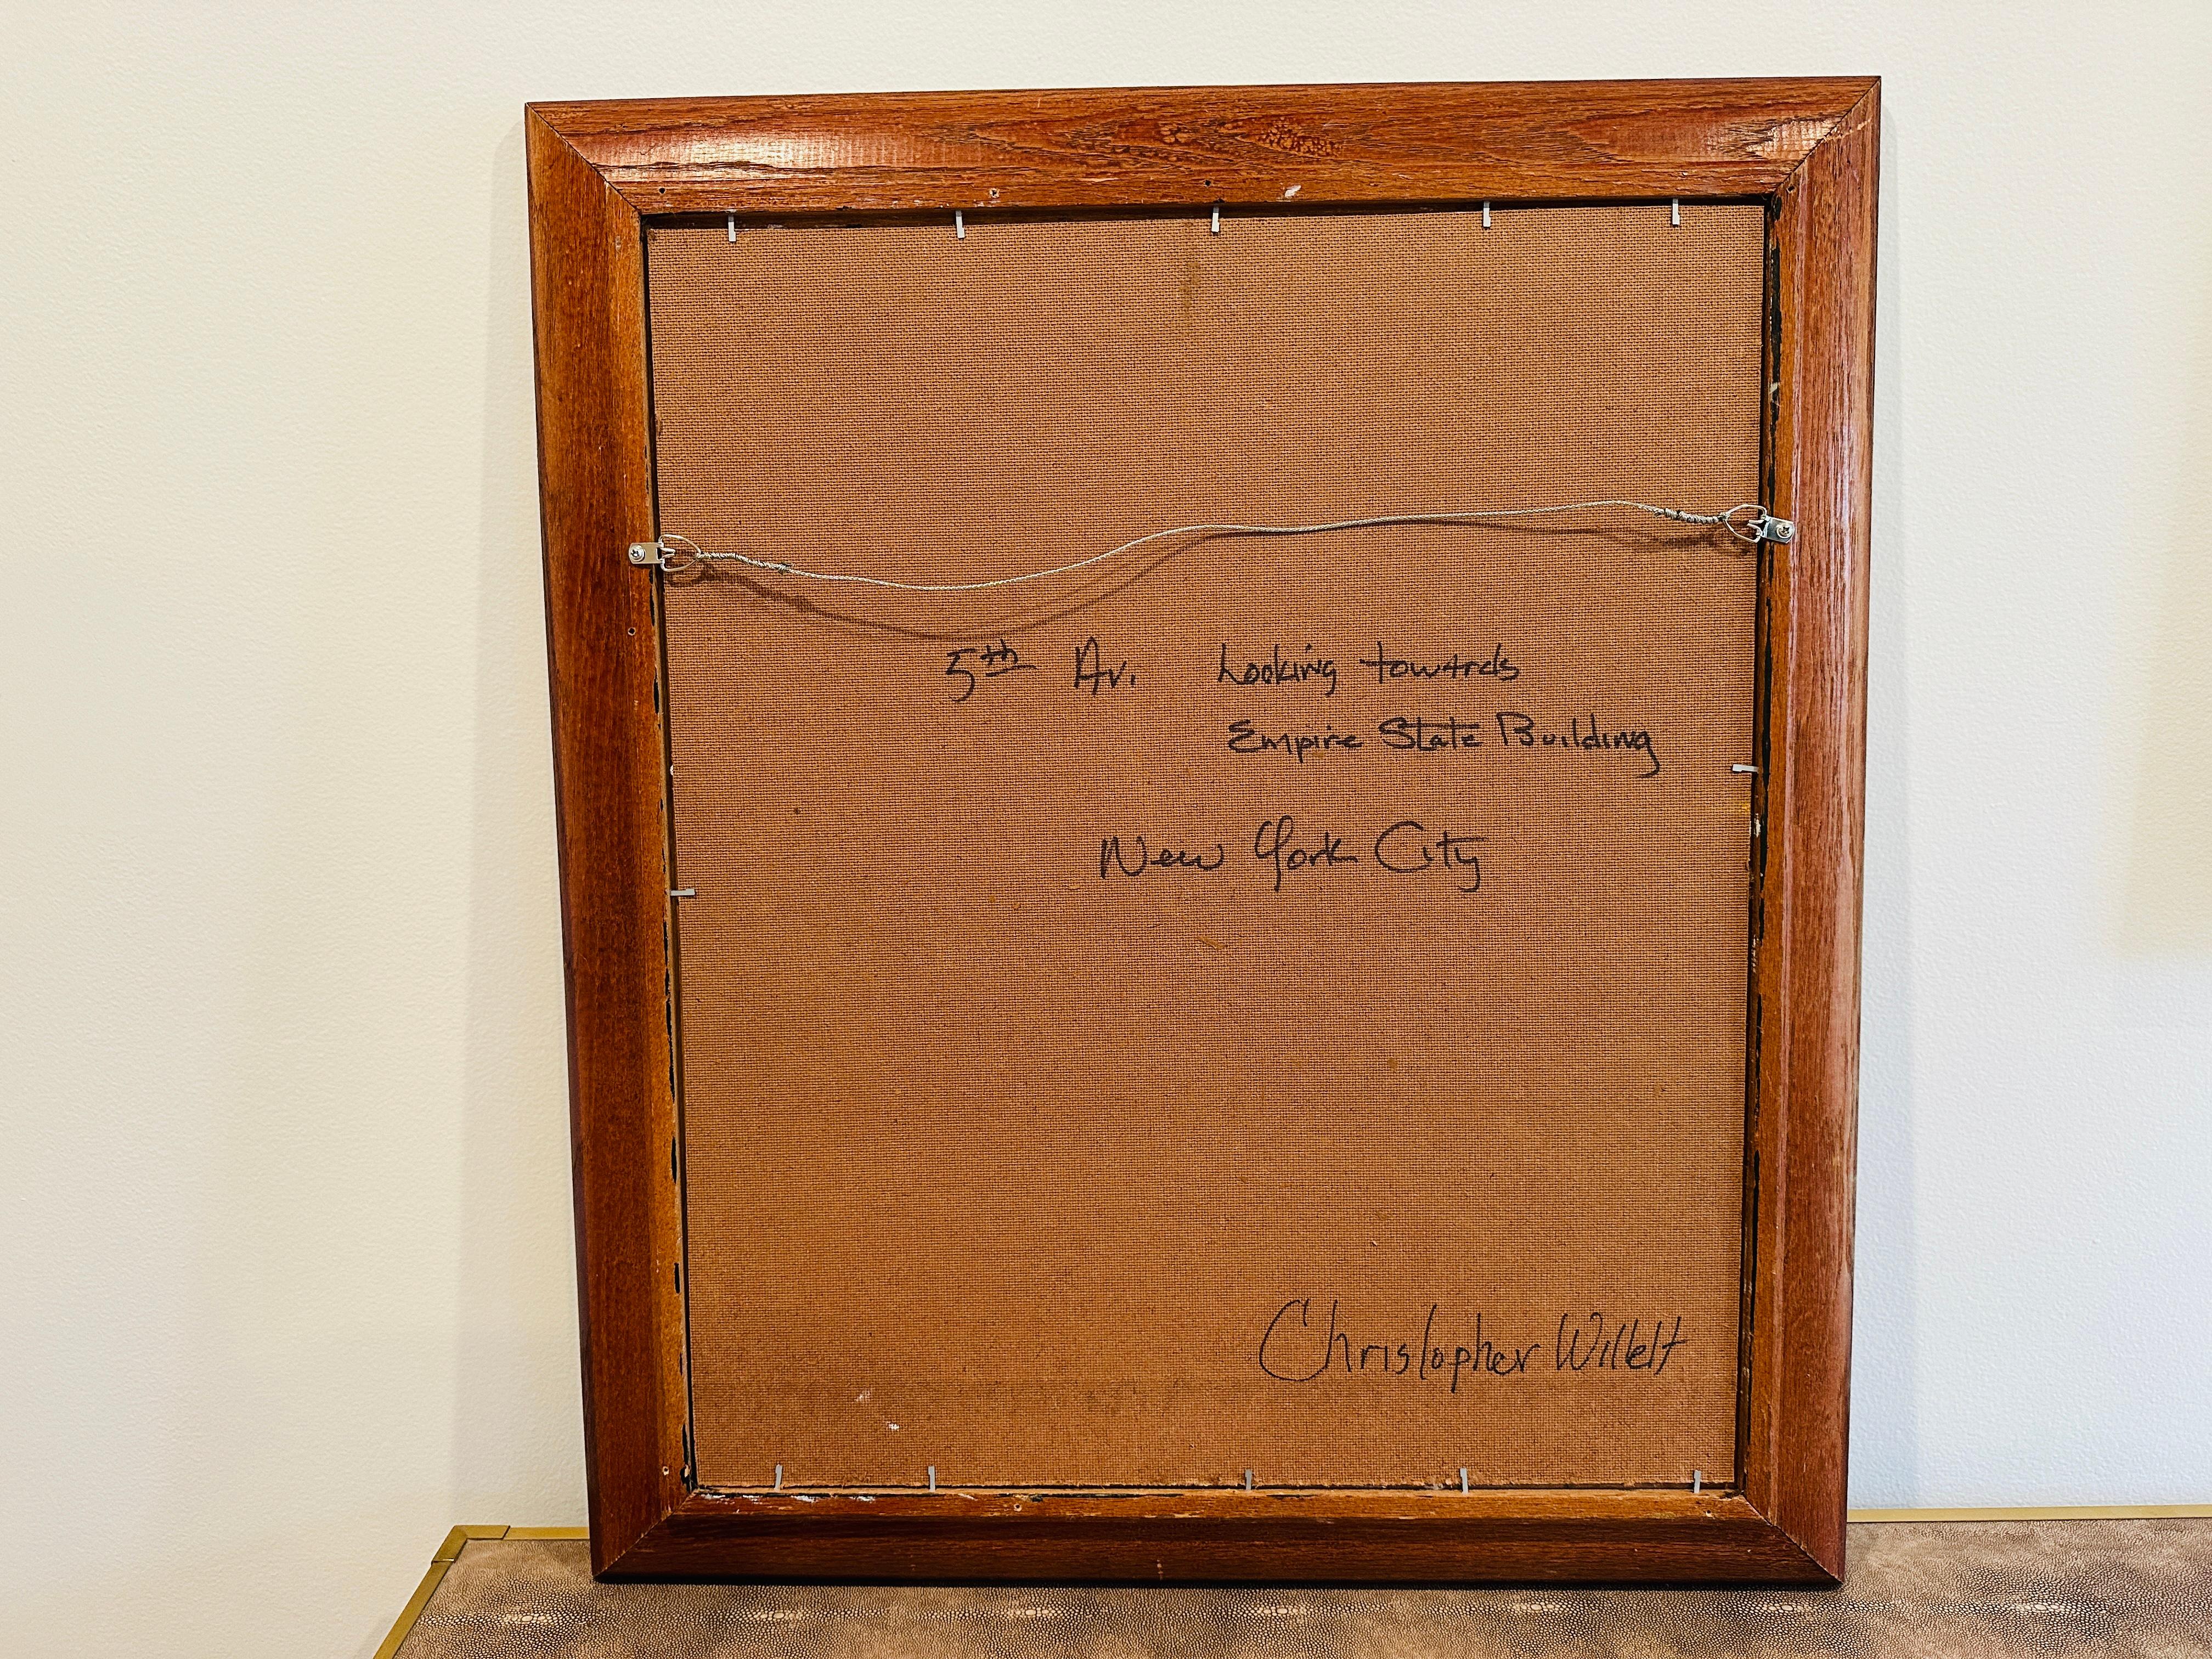 5th Av. Looking towards
Empire State Building
New York City
Christopher Willett